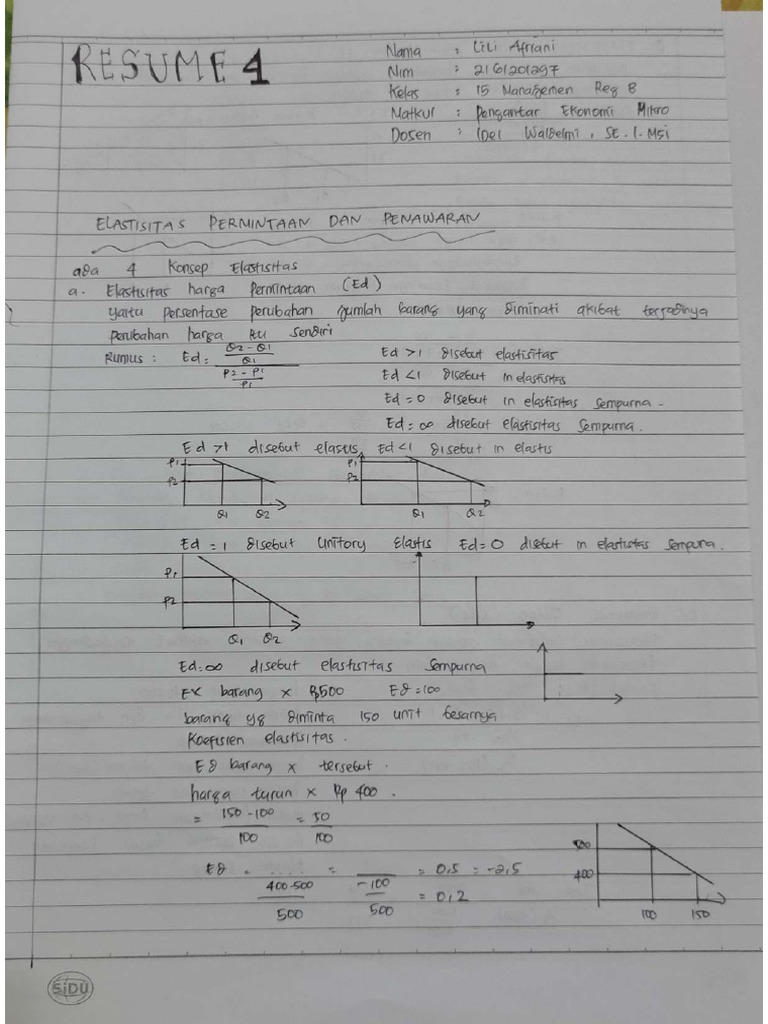 RESUME 4
Nama : Lili Afriani
Nim : 2161201297
Kelas : 15 Manajemen Reg B
Matkul : Pengantar Ekonomi Mikro
Dosen : Idel Waldelmi, SE.I.Msi
ELASTISITAS PERMINTAAN DAN PENAWARAN
ada 4 Konsep Elastisitas
a. Elastisitas harga Permintaan (Ed)
yaitu Persentase perubahan jumlah barang yang diminati akibat terjadinya
perubahan harga itu sendiri
Rumus : Ed = Q2 - Q1 / Q1 / P2 - P1 / P1
Ed > 1 disebut elastisitas
Ed < 1 disebut in elastisitas
Ed = 0 disebut in elastisitas sempurna.
Ed = ∞ disebut elastisitas sempurna.
Ed > 1 disebut elastis Ed < 1 disebut in elastis
P1 P2 Q1 Q2
P1 P2 Q1 Q2
Ed = 1 disebut Unitory Elastis Ed = 0 disebut in elastistas sempurna.
P1 P2 Q1 Q2
Ed = ∞ disebut elastisitas sempurna
Ex barang x Rp500 Ed = 100
barang yg diminta 150 unit besarnya
Koefisien elastisitas.
Ed barang x tersebut.
harga turun x Rp 400.
= 150 - 100 / 100 = 50 / 100
Ed = .... / 400 - 500 / 500 = / -100 / 500 = 0,5 = -2,5
= 0,2
500
400
100 150
SiDU